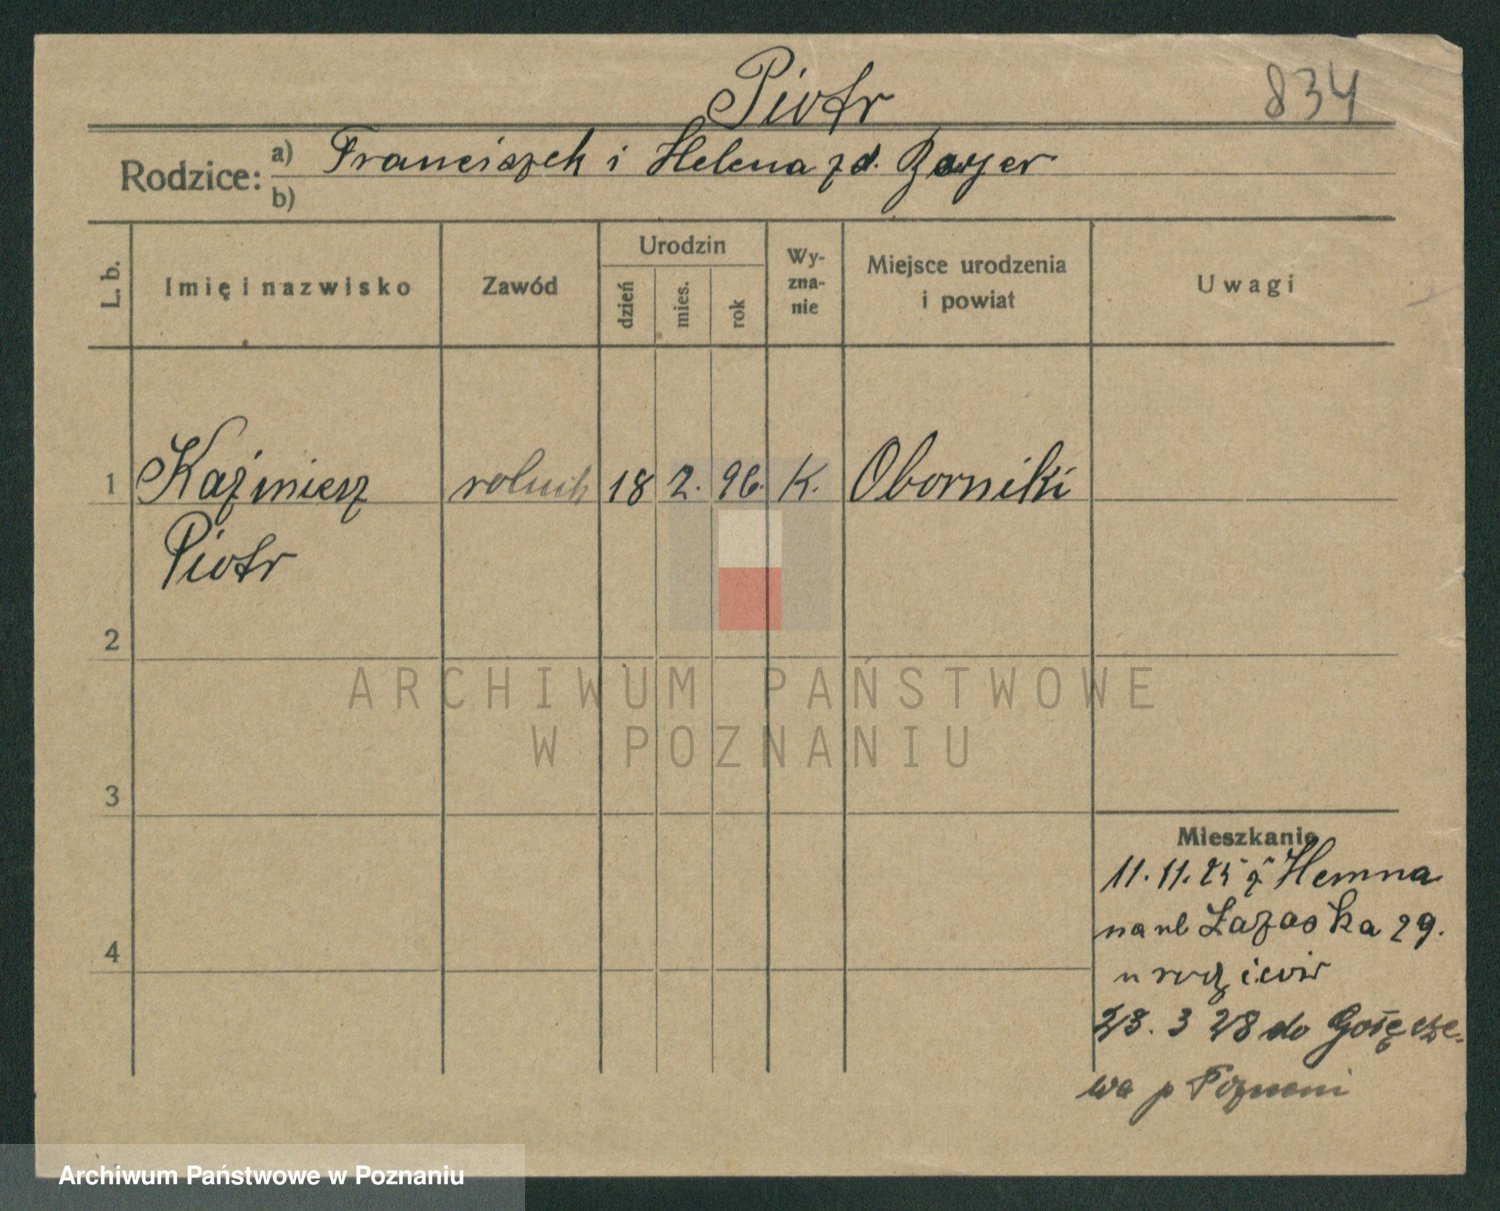 Piotr
834
Rodzice:
a) Franciszek i Helena zd.
b)
L. b.
Imię i nazwisko
Zawód
Urodzin
dzień
mies.
rok
Wy-
zna-
nie
Miejsce urodzenia
i powiat
Uwagi
1 Kaźmiesz rolnik 18 2. 96. K. Oborniki
Piotr
2
3
4
Mieszkanie
11.11.25 z Hemna
na ul 29.
u rodziców
23. 3 28 do
wa p
ARCHIWUM PAŃSTWOWE
W POZNANIU
Archiwum Państwowe w Poznaniu